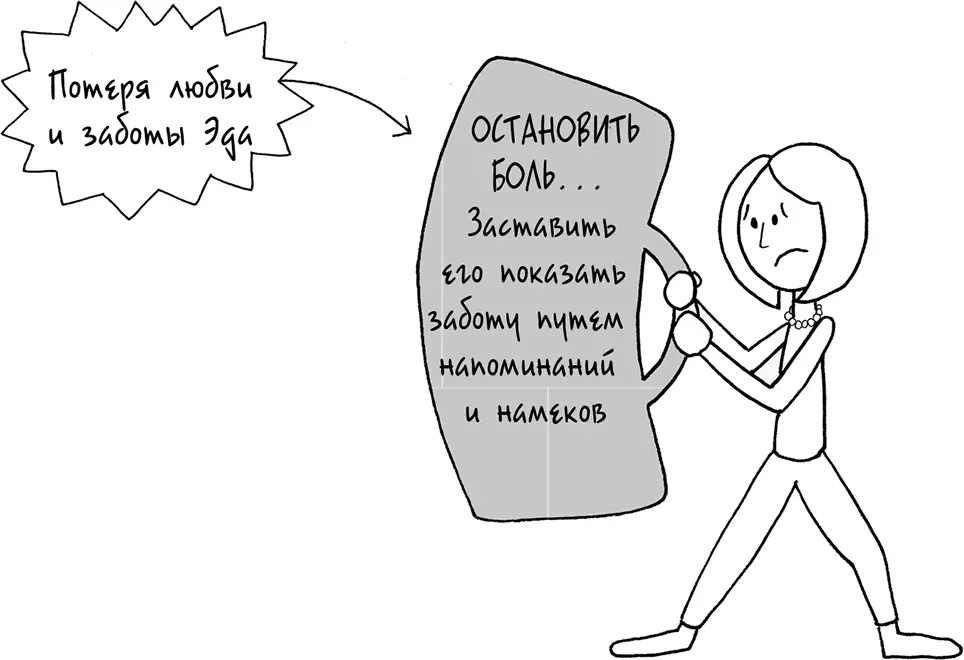 Потеря любви
и заботы Эда
ОСТАНОВИТЬ
БОЛЬ...
Заставить
его показать
заботу путем
напоминаний
и намеков